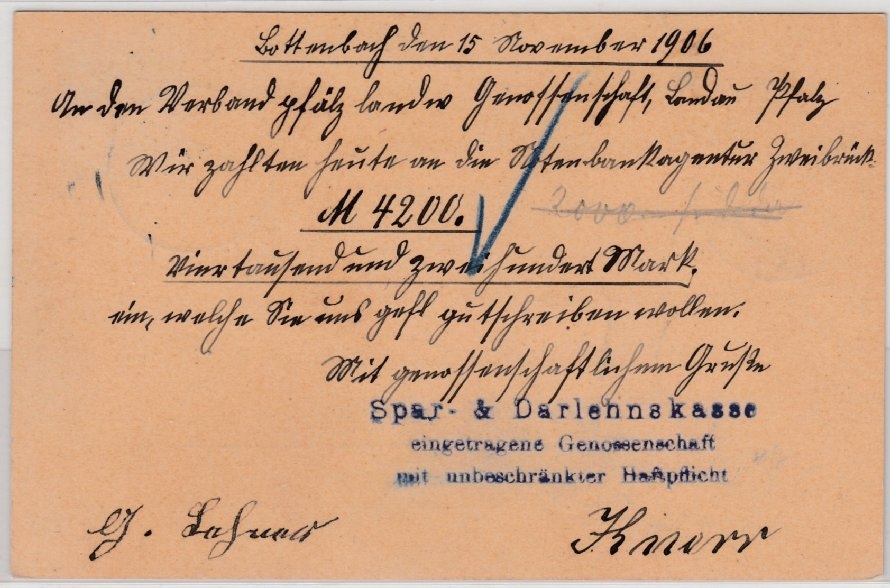 Bottenbach den 15 November 1906
An den Verband pfälz landw Genossenschaft, Landau Pfalz
Wir zahlten heute an die Notenbankagentur Zweibrück.
M 4200.
2000
Viertausend und zweihundert Mark.
ein, welche Sie uns gefl gutschreiben wollen.
Mit genossenschaftlichem Gruße
Spar- & Darlehnskasse
eingetragene Genossenschaft
mit unbeschränkter Haftpflicht
G.
Knerr